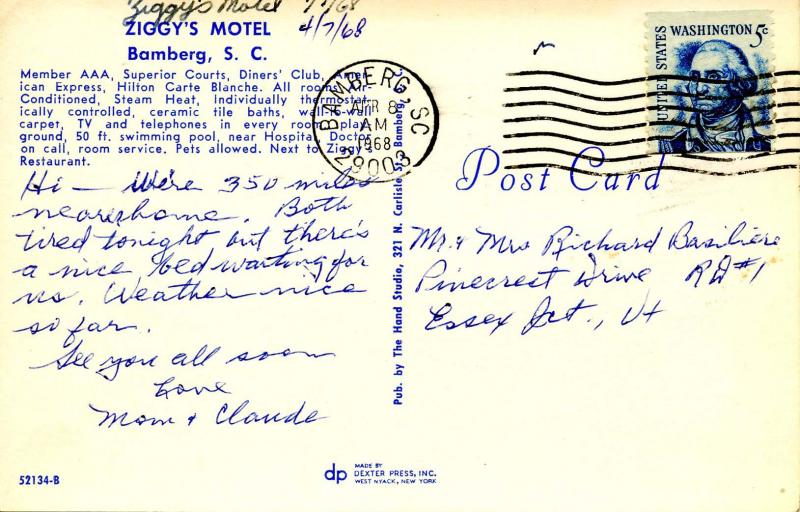 Ziggy's Motel
ZIGGY'S MOTEL
4/7/68
Bamberg, S. C.
Member AAA, Superior Courts, Diners' Club, Amer-
ican Express, Hilton Carte Blanche. All rooms Air-
Conditioned, Steam Heat, Individually thermostat-
ically controlled, ceramic tile baths, wall-to-wall
carpet, TV and telephones in every room, play-
ground, 50 ft. swimming pool, near Hospital, Doctor
on call, room service. Pets allowed. Next to Ziggy's
Restaurant.
Hi - We're 350 miles
nearer home. Both
tired tonight but there's
a nice bed waiting for
us. Weather nice
so far.
See you all soon
Love
Mom & Claude
52134-B
Pub. by The Hand Studio, 321 N. Carlisle St., Bamberg, S. C.
dp
MADE BY
DEXTER PRESS, INC.
WEST NYACK, NEW YORK
BAMBERG, SC
APR 8
AM
1968
29003
UNITED STATES
WASHINGTON 5c
Post Card
Mr & Mrs Richard Basiliere
Pinecrest Drive RD #1
Essex Jct., Vt